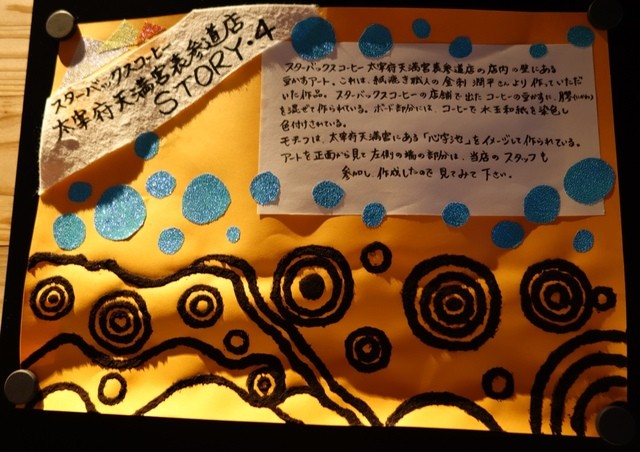 スターバックスコーヒー
太宰府天満宮表参道店
STORY.4
スターバックスコーヒー 太宰府天満宮表参道店の店内の壁にある
豆かすアート。これは、紙漉き職人の金刺潤平さんより作っていただ
いた作品。スターバックスコーヒーの店舗で出たコーヒーの豆かすに、膠(にかわ)
を混ぜて作られている。ボード部分には、コーヒーで水玉和紙を染色し
色付けされている。
モチーフは、太宰府天満宮にある「心字池」をイメージして作られている。
アートを正面から見て左側の端の部分は、当店のスタッフも
参加し、作成したので見てみて下さい。